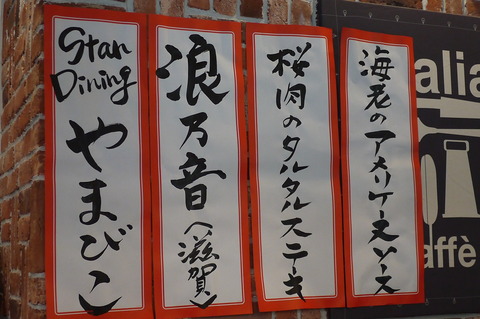 海老のアメリケーヌソース
桜肉のタルタルステーキ
浪乃音〈滋賀〉
Stan
Dining
やまびこ
alia
affè